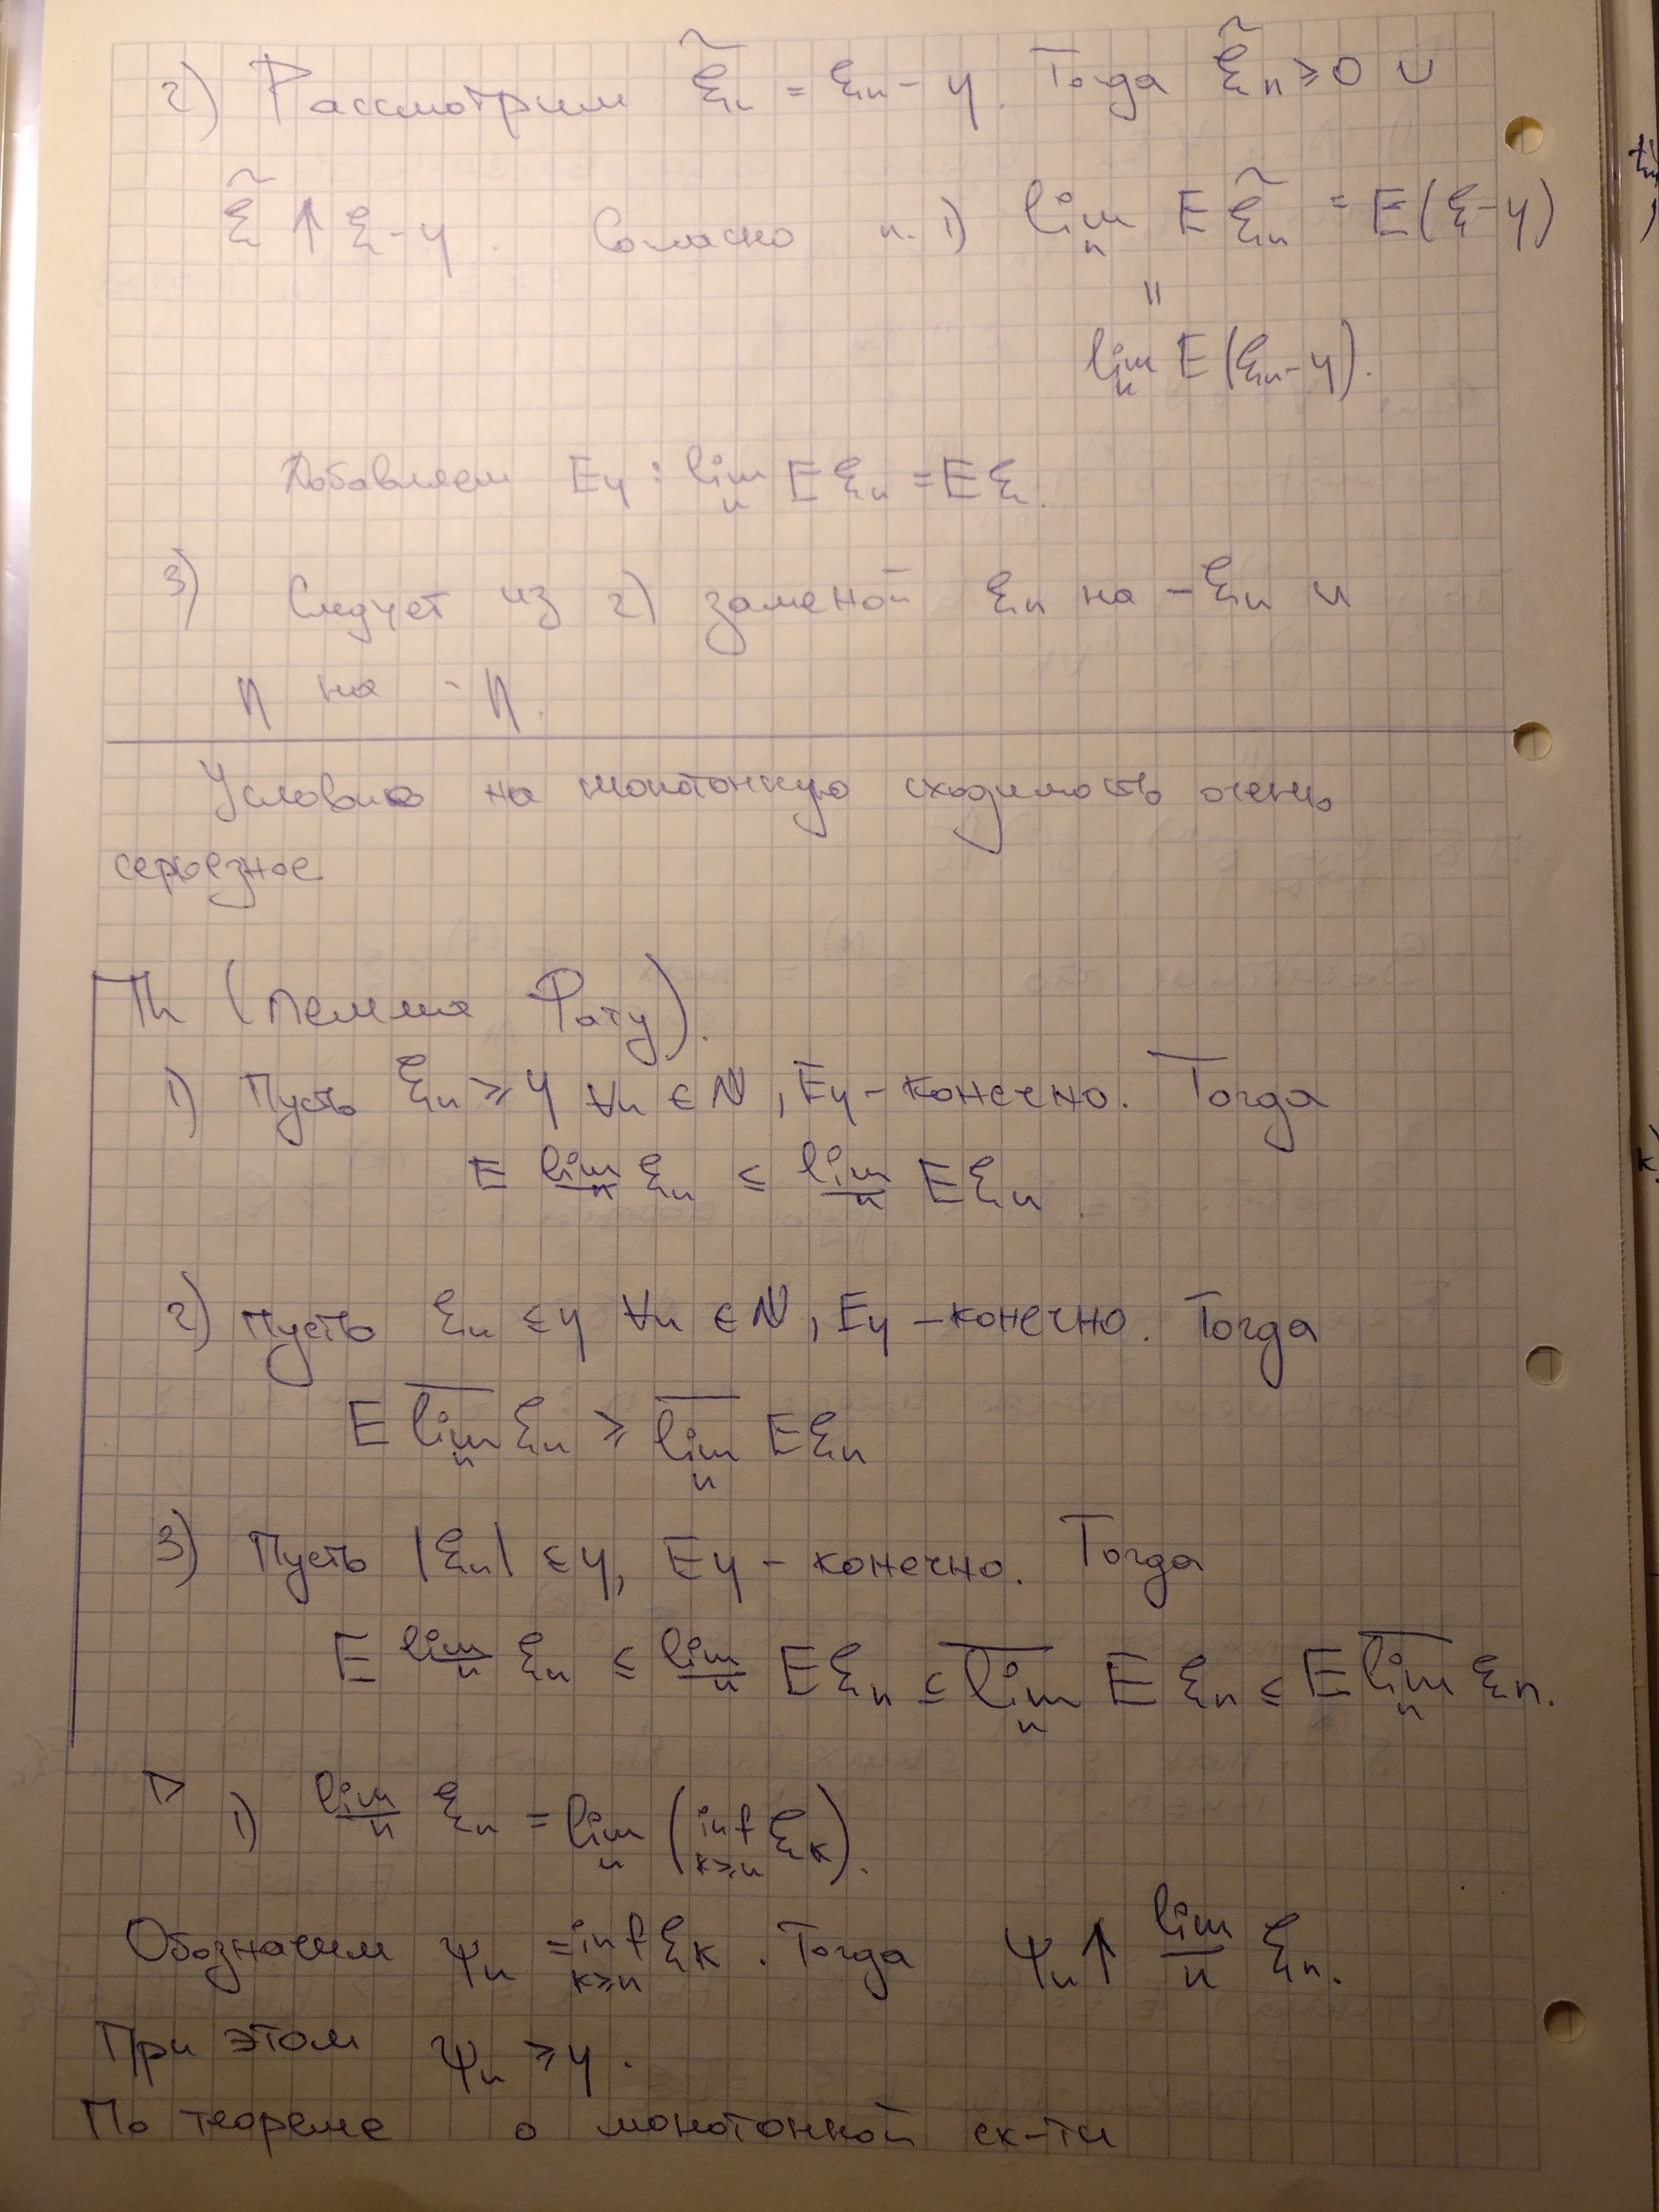 2) Рассмотрим ξ̃ₙ = ξₙ - η. Тогда ξ̃ₙ ≥ 0 и
ξ̃ ↑ ξ - η. Согласно п. 1) lim_n E ξ̃ₙ = E(ξ - η)
||
lim_n E(ξₙ - η).
Добавляем Eη : lim_n E ξₙ = E ξ.
3) Следует из 2) заменой ξₙ на -ξₙ и
η на -η.
Условие на монотонную сходимость очень
серьезное
Th (Лемма Фату).
1) Пусть ξₙ ≥ η ∀n ∈ ℕ, Eη - конечно. Тогда
E \underline{lim}_n ξₙ ≤ \underline{lim}_n E ξₙ.
2) Пусть ξₙ ≤ η ∀n ∈ ℕ, Eη - конечно. Тогда
E \overline{lim}_n ξₙ ≥ \overline{lim}_n E ξₙ
3) Пусть |ξₙ| ≤ η, Eη - конечно. Тогда
E \underline{lim}_n ξₙ ≤ \underline{lim}_n E ξₙ ≤ \overline{lim}_n E ξₙ ≤ E \overline{lim}_n ξₙ.
▷ 1) \underline{lim}_n ξₙ = lim_n (inf_{k≥n} ξ_k).
Обозначим ψₙ = inf_{k≥n} ξ_k. Тогда ψₙ ↑ \underline{lim}_n ξₙ.
При этом ψₙ ≥ η.
По теореме о монотонной сх-ти